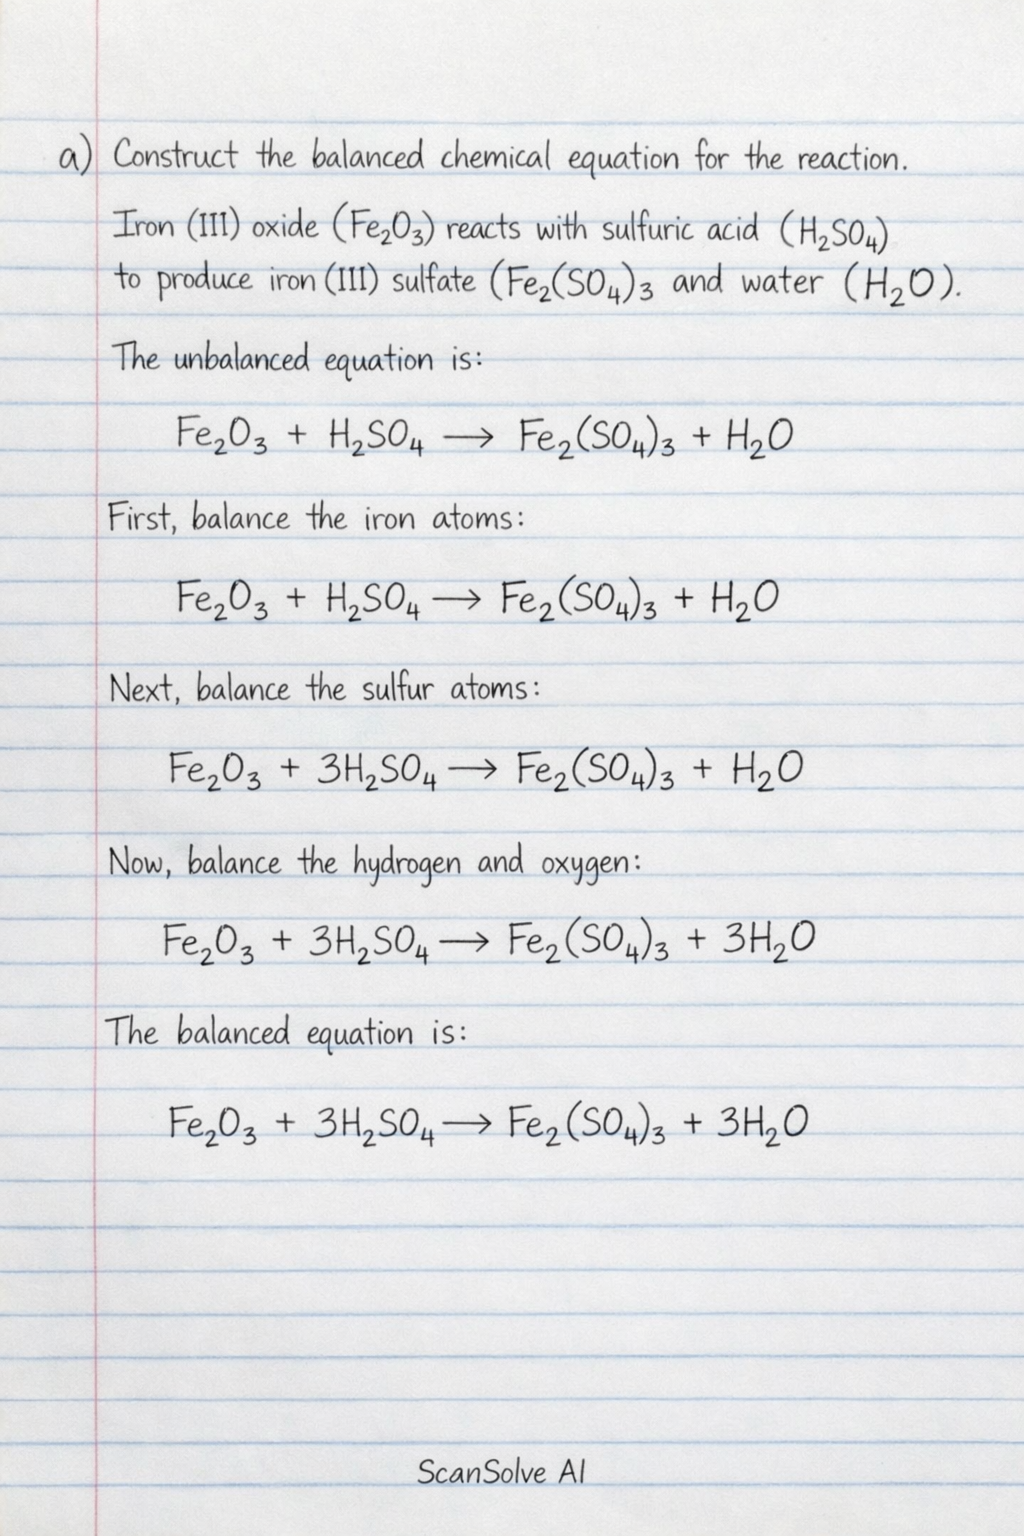 a) Construct the balanced chemical equation for the reaction.
Iron (III) oxide (Fe₂O₃) reacts with sulfuric acid (H₂SO₄)
to produce iron (III) sulfate (Fe₂(SO₄)₃ and water (H₂O).
The unbalanced equation is:
Fe₂O₃ + H₂SO₄ → Fe₂(SO₄)₃ + H₂O
First, balance the iron atoms:
Fe₂O₃ + H₂SO₄ → Fe₂(SO₄)₃ + H₂O
Next, balance the sulfur atoms:
Fe₂O₃ + 3H₂SO₄ → Fe₂(SO₄)₃ + H₂O
Now, balance the hydrogen and oxygen:
Fe₂O₃ + 3H₂SO₄ → Fe₂(SO₄)₃ + 3H₂O
The balanced equation is:
Fe₂O₃ + 3H₂SO₄ → Fe₂(SO₄)₃ + 3H₂O
ScanSolve AI